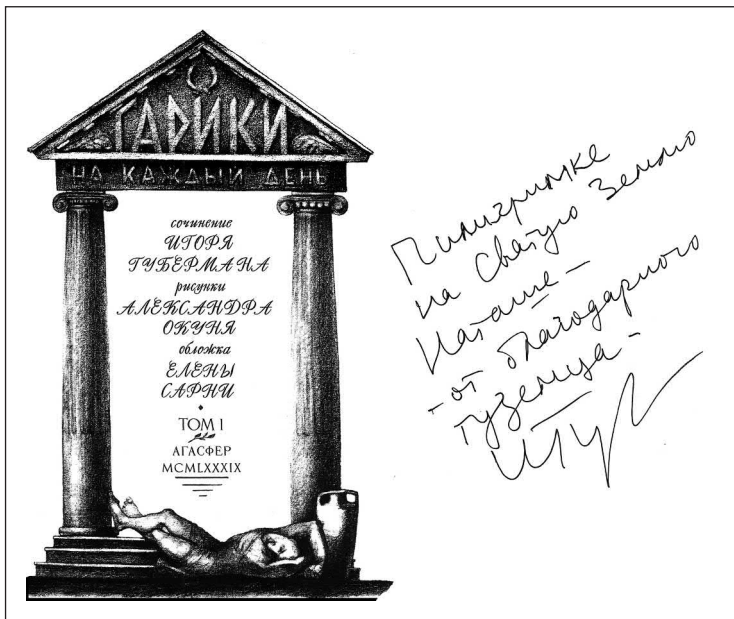 ГАРИКИ
НА КАЖДЫЙ ДЕНЬ
сочинение
ИГОРЯ
ГУБЕРМАНА
рисунки
АЛЕКСАНДРА
ОКУНЯ
обложка
ЕЛЕНЫ
САРНИ
ТОМ I
АГАСФЕР
MCMLXXXIX
Пилигримке
на Святую Землю
Наташе –
– от благодарного
туземца –
ИГу